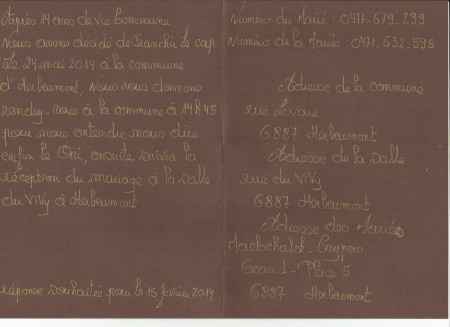 Après 14 ans de vie commune
nous avons décidé de franchir le cap
Le 24 mai 2014 à la commune
d'Herbeumont, nous vous donnons
rendez-vous à la commune à 14H45
pour nous entendre nous dire
enfin le Oui, ensuite suivra la
réception du mariage à la salle
du Vivy à Herbeumont
réponse souhaitée pour le 15 février 2014
Numéro du Marié : 0471.619.299
Numéro de la Mariée : 0471.532.595
Adresse de la commune
rue
6887 Herbeumont
Adresse de la salle
rue du Vivy
6887 Herbeumont
Adresse des Mariés
Grand-Place 5
6887 Herbeumont